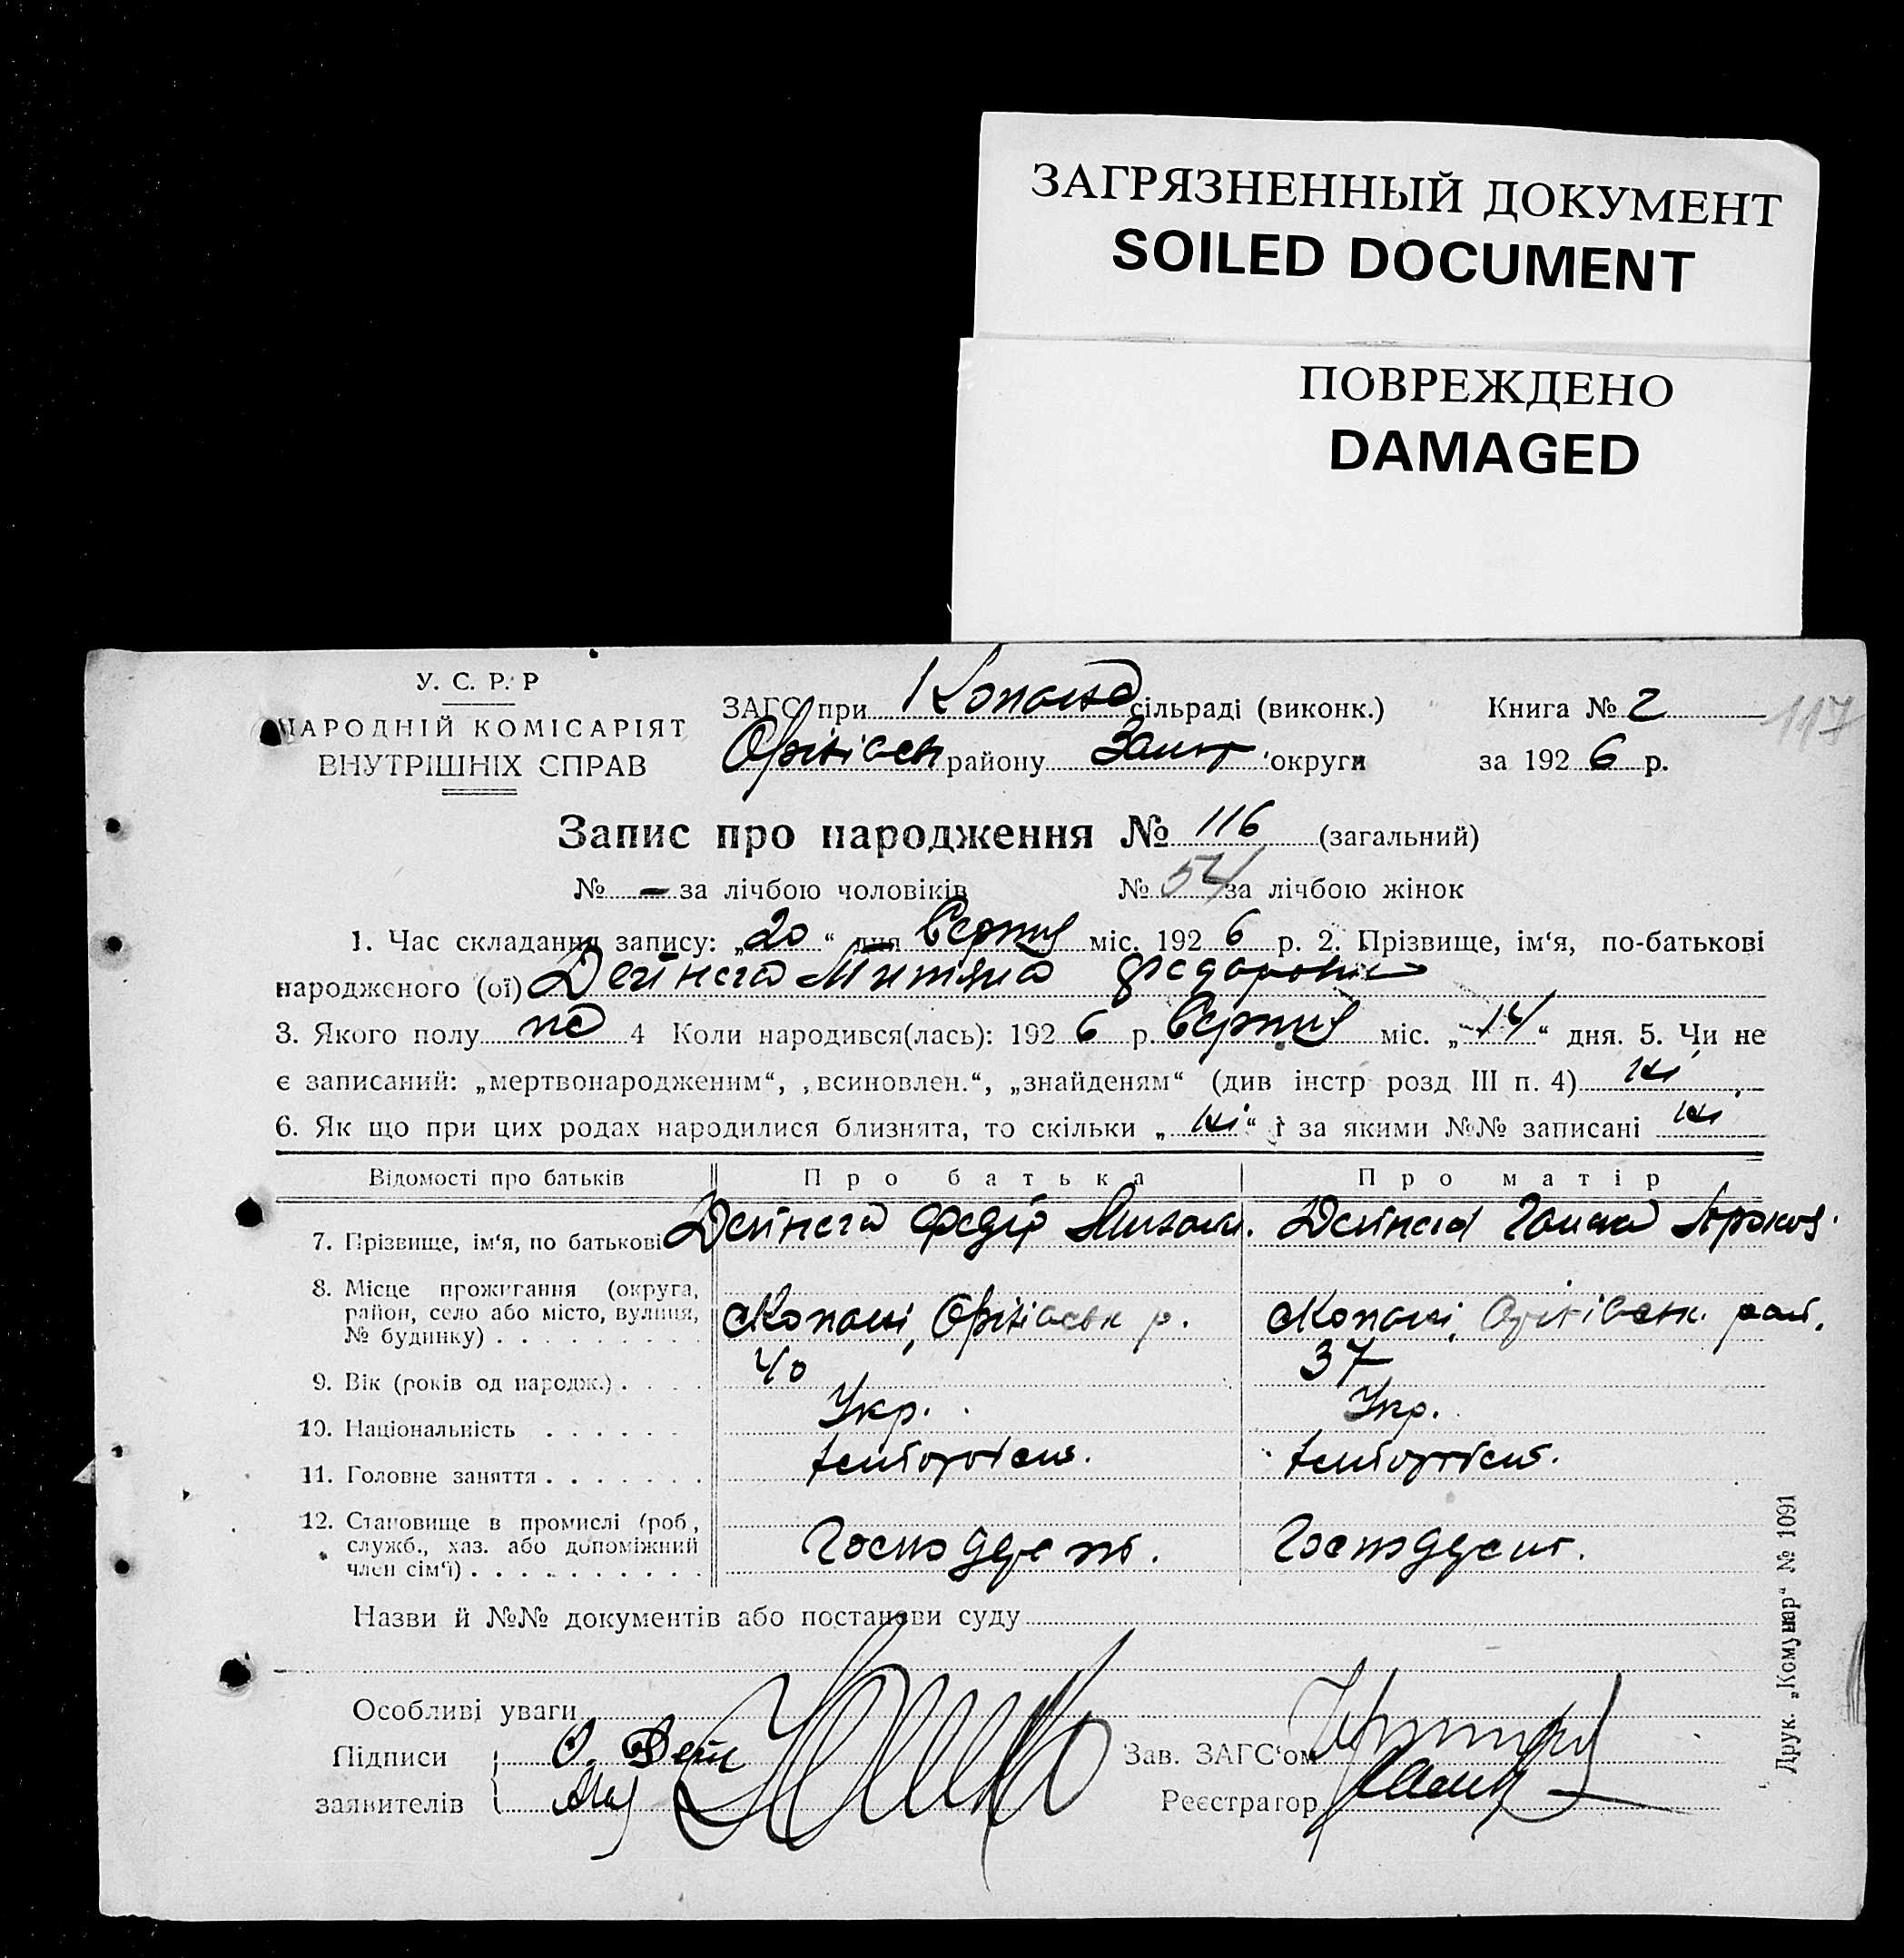 ЗАГРЯЗНЕННЫЙ ДОКУМЕНТ
SOILED DOCUMENT
ПОВРЕЖДЕНО
DAMAGED
У. С. Р. Р
НАРОДНІЙ КОМІСАРІЯТ
ВНУТРІШНІХ СПРАВ
ЗАГС при сільраді (виконк.)
району Запор округи
Книга № 2
за 1926 р.
117
Запис про народження № 116 (загальний)
№ - за лічбою чоловіків № 54 за лічбою жінок
1. Час складання запису: „20“ дня Серпня міс. 1926 р. 2. Прізвище, ім‘я, по-батькові
народженого (ої) Дейнега Федоровн
3. Якого полу 4 Коли народився(лась): 1926 р. Серпня міс. „14“ дня. 5. Чи не
є записаний: „мертвонародженим“, „всиновлен.“, „знайденям“ (див інстр розд III п. 4) ні
6. Як що при цих родах народилися близнята, то скільки „ні“ і за якими №№ записані ні
Відомості про батьків Про батька Про матір
7. Прізвище, ім‘я, по батькові Дейнега Федір Дейнега Ганна
8. Місце прожигання (округа,
район, село або місто, вулиця,
№ будинку) Копані, Оріхівськ р. Копані, Оріхівськ. рай.
9. Вік (років од народж.) 40 37
10. Національність Укр. Укр.
11. Головне заняття
12. Становище в промислі (роб,
служб., хаз. або допоміжний
член сім‘ї)
Назви й №№ документів або постанови суду
Особливі уваги
Підписи
заявителів
Зав. ЗАГС‘ом
Реєстратор
Друк. „Комунар“ № 1091